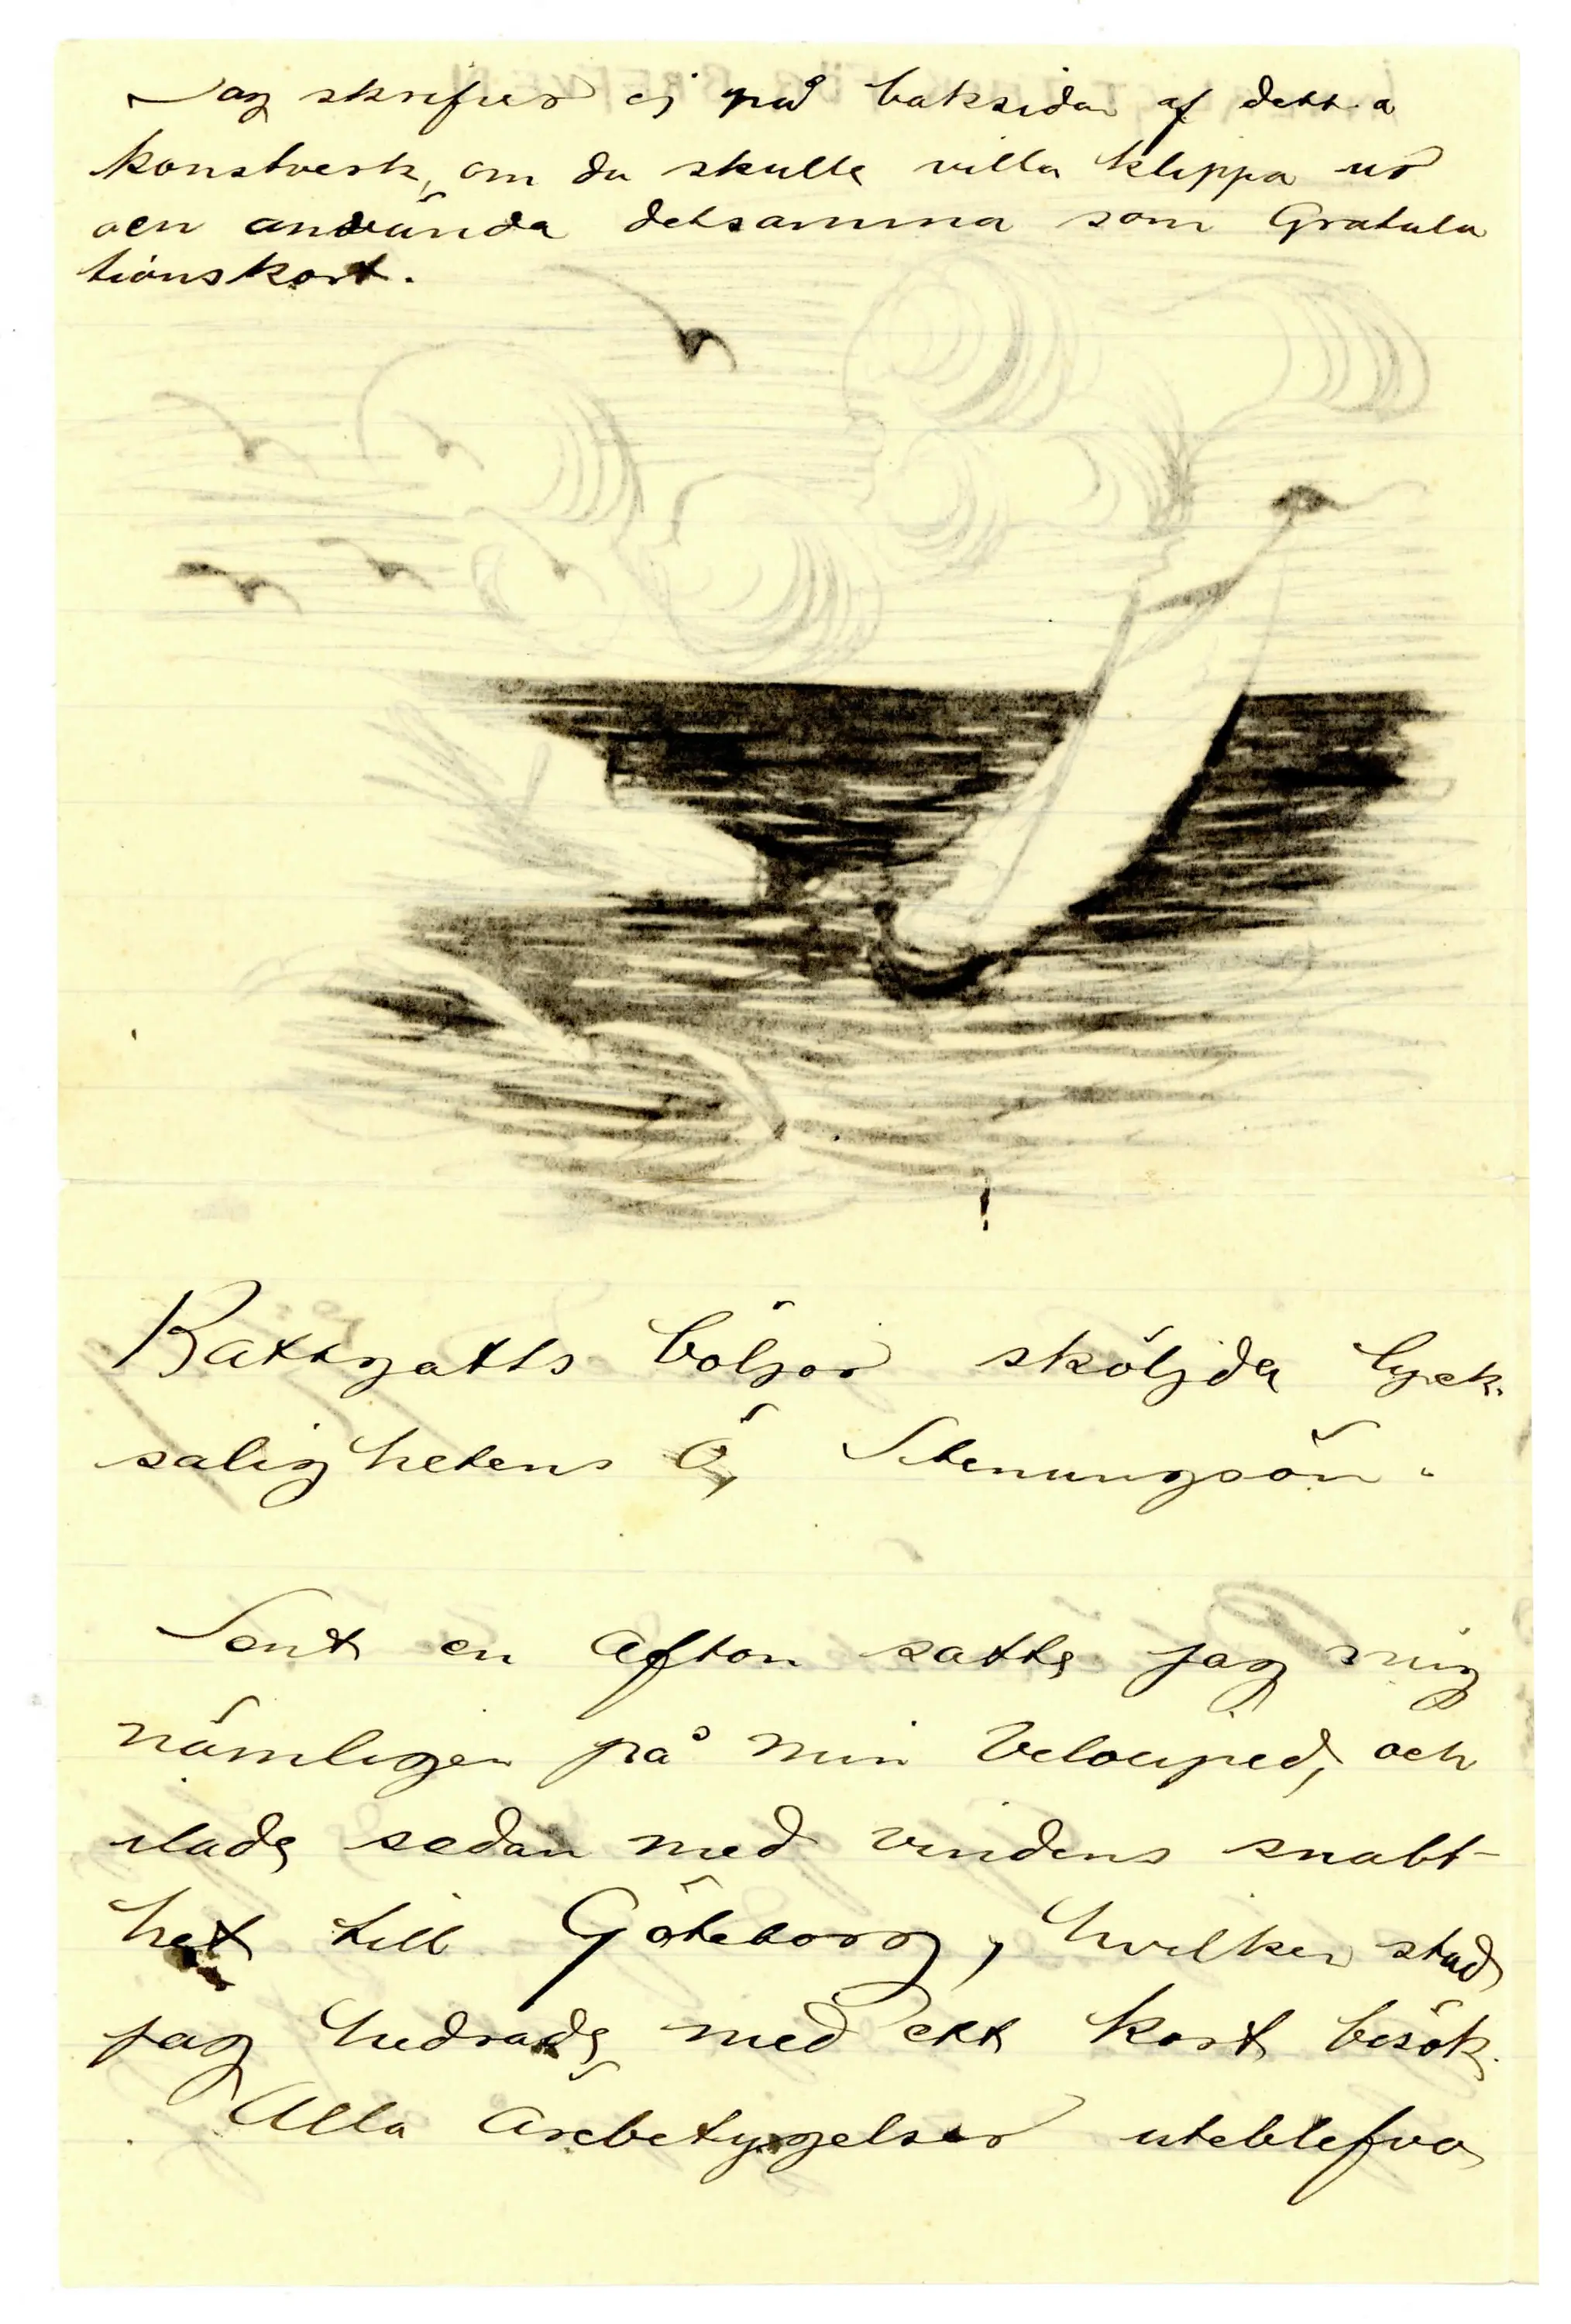 Jag skrifver ej på baksidan af detta
konstverk, om du skulle villa klippa ur
och använda detsamma som Gratula
tionskort.
Kattgatts böljor sköljda lyck-
salighetens Ö, Stenungsön.
Sent en afton satte jag mig
nämligen på min Velociped, och
ilade sedan med vindens snabb-
het till Göteborg, hvilken stad
jag hedrade med ett kort besök.
Alla ärebetygelser uteblefvo